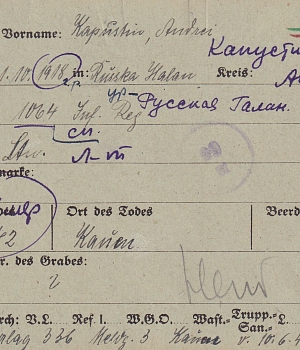 Vorname: Kapustin, Andrei
Капусти
1.10.1918 in: Ruska Halan Kreis:
1064 Inf. Reg ур-Русская Галан.
см.
Ltn. Л-т
marke:
умер
2 Ort des Todes Beerd
Kauen
r. des Grabes:
rch: V.L. Ref. I. W.G.O. Wast.- Trupp.- San.- L
alag 336 Meldg. 3 Kauen v. 10.6.4